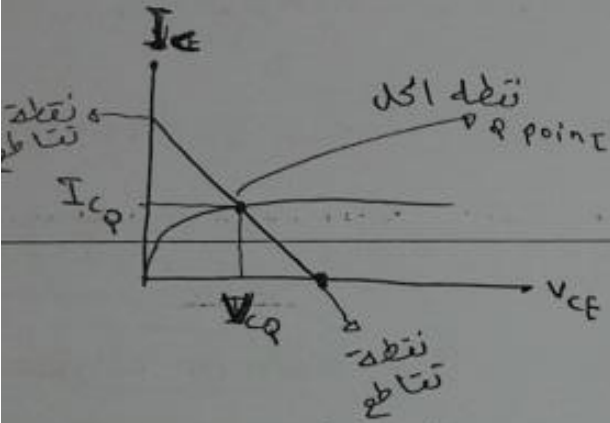 I_C
نقطة
تقاطع
نقطة الحل
Q point
I_CQ
V_CQ
V_CE
نقطة
تقاطع